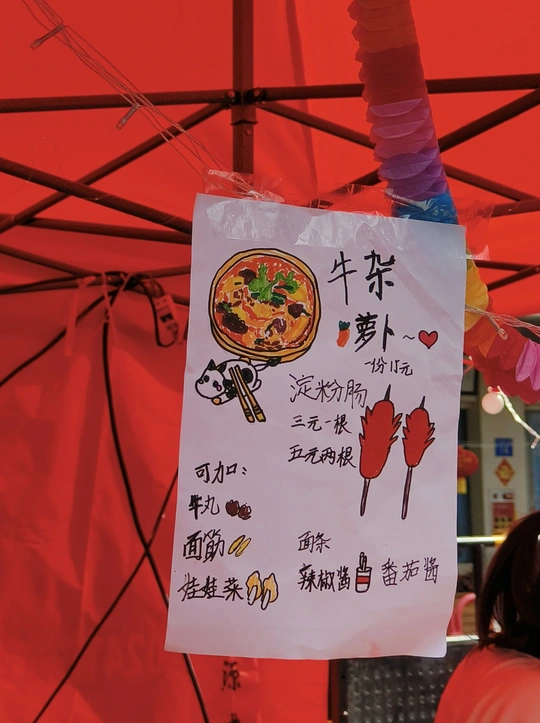 牛杂
萝卜~
一份15元
淀粉肠
三元一根
五元两根
可加:
牛丸
面筋
娃娃菜
面条
辣椒酱
番茄酱
源